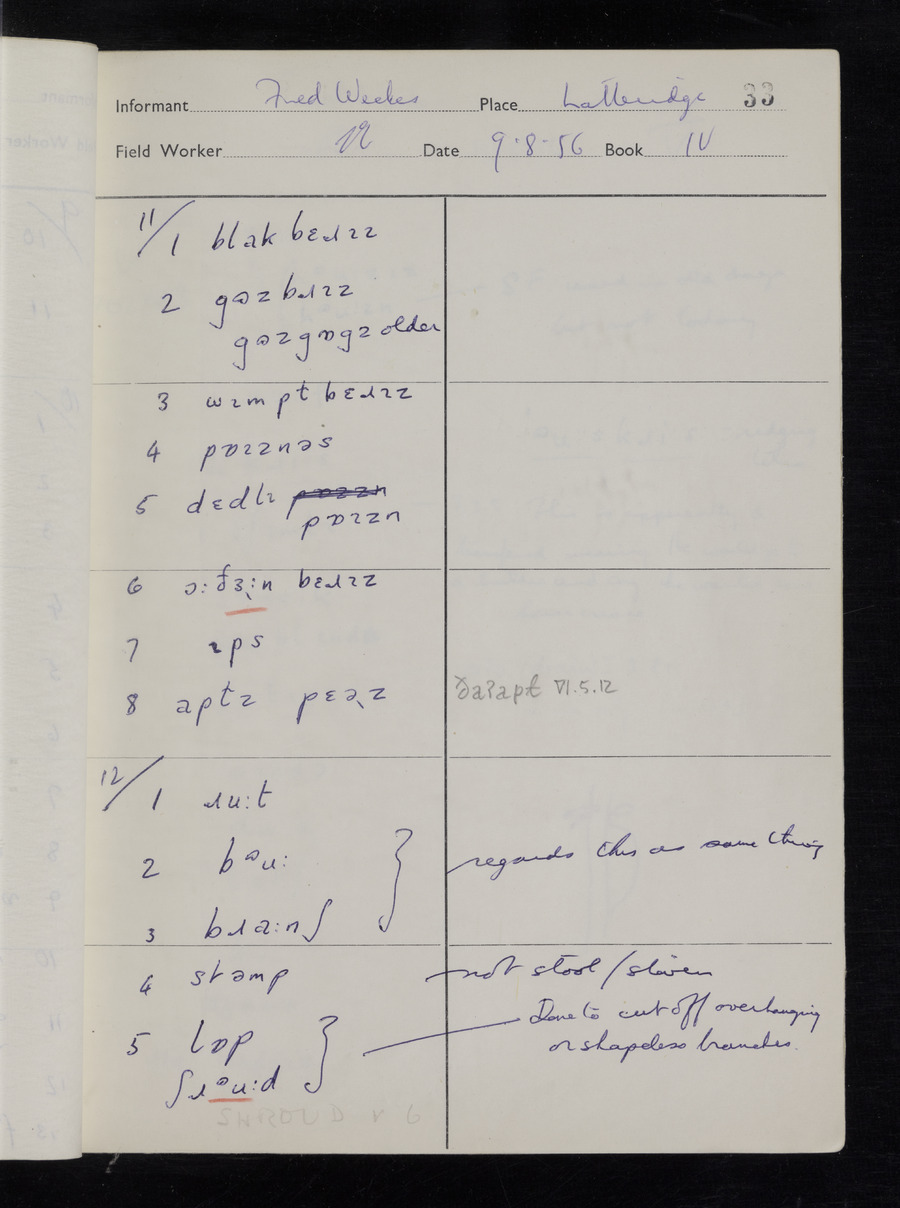 Informant Fred Weekes Place Latteridge 33
Field Worker Date 9.8.56 Book IV
11/ 1 blak bɛɹɪz
2 gɒzbɹɪz
gɒzgɒgz older
3 wɪmpt bɛɹɪz
4 pɒɪznəs
5 dɛdlɪ
pɒɪzn
6 bɛɹɪz
7 ɪps
8 aptɪ
ðaʔapt VI.5.12
12/ 1 ɹu:t
2 bəu:
regards this as same thing
3 bɹa:nʃ
4 stəmp not stool / sliven
Done to cut off overhanging
5 lɒp
or shapeless branches.
ʃɹəu:d
SHROUD v 6